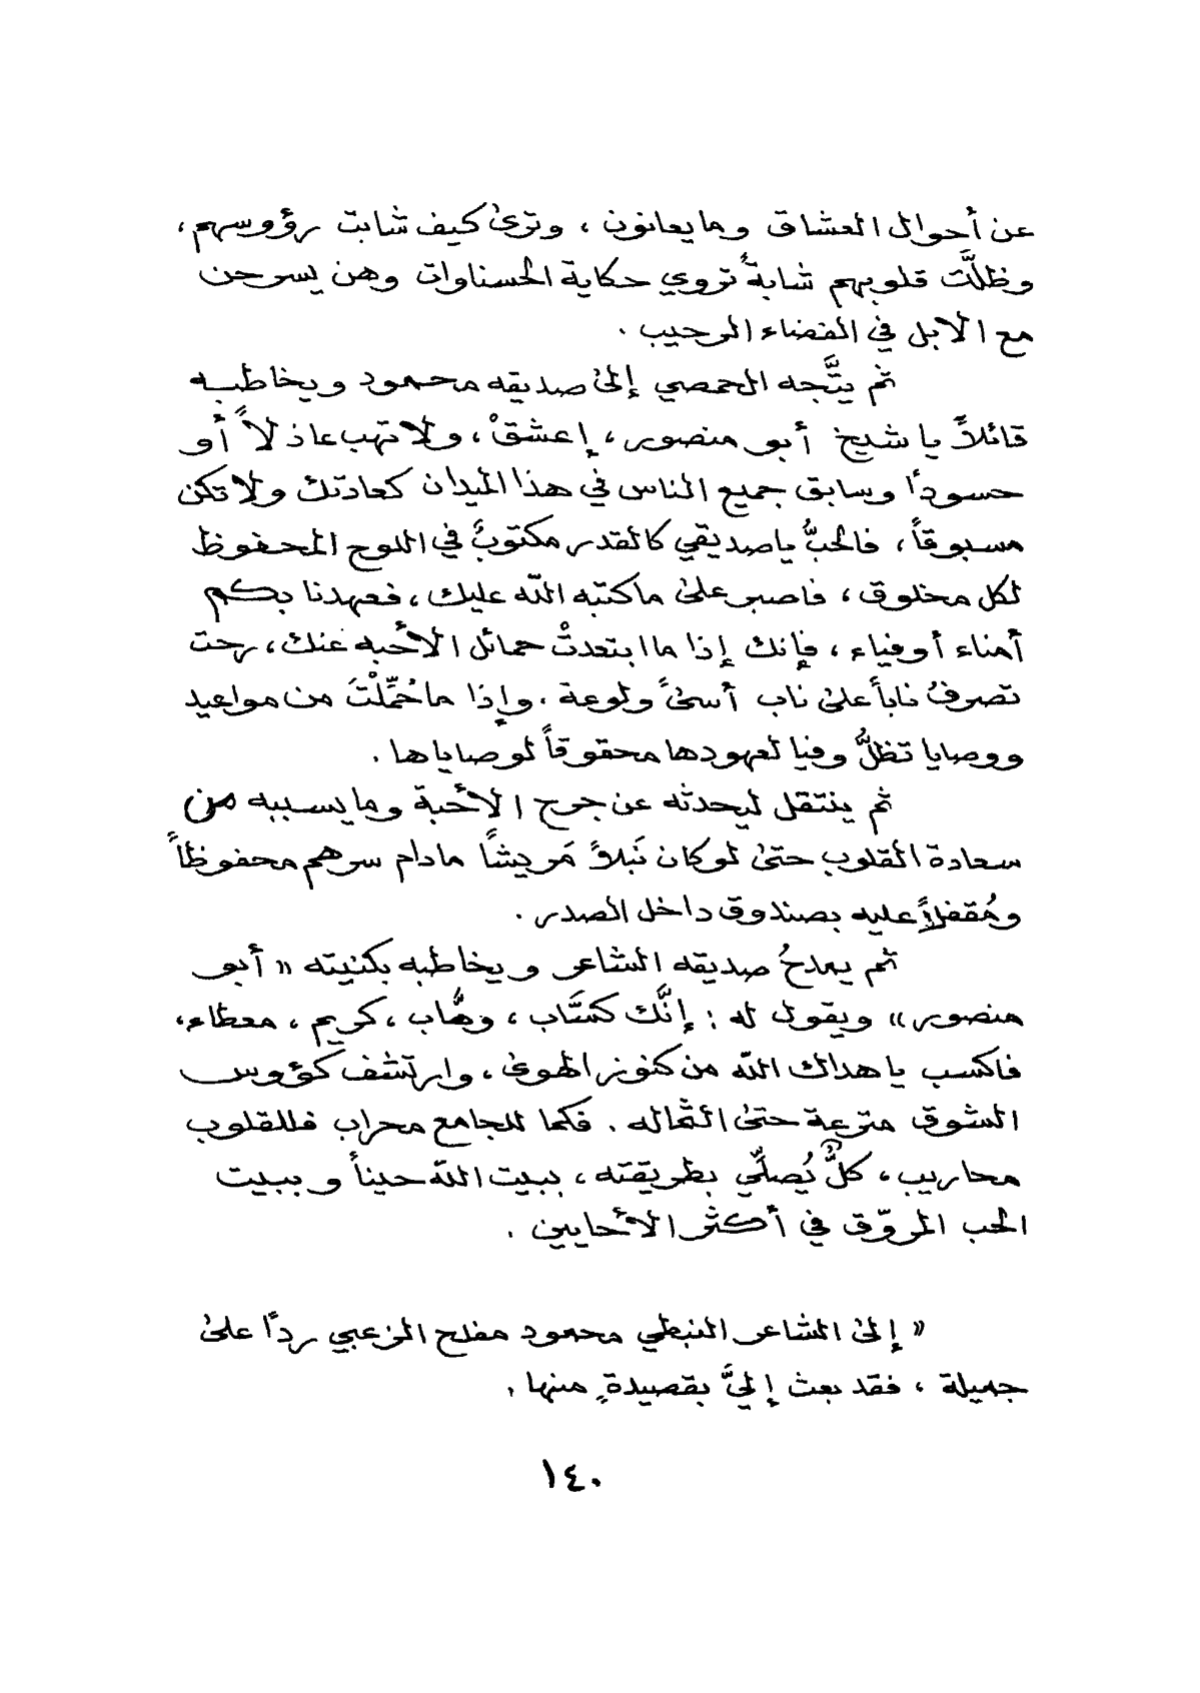 عن أحوال العشاق وما يعانون ، وترى كيف شابت رؤوسهم ،
وظلَّت قلوبهم شابةً تروي حكاية الحسناوات وهن يسرحن
مع الابل في الفضاء الرحيب .
ثم يتَّجه الحمصي إلى صديقه محمود ويخاطبه
قائلاً يا شيخ أبو منصور ، إعشقْ ، ولا تهب عاذلاً أو
حسوداً وسابق جميع الناس في هذا الميدان كعادتك ولا تكن
مسبوقاً ، فالحبُّ يا صديقي كالقدر مكتوبٌ في اللوح المحفوظ
لكل مخلوق ، فاصبر على ما كتبه الله عليك ، فعهدنا بكم
أمناء أوفياء ، فإنك إذا ما ابتعدتْ حمائل الأحبه عنك ، رحت
تصرفُ ناباً على ناب أسىً ولوعة . وإذا ما حُمِّلْتَ من مواعيد
ووصايا تظلُّ وفيا لعهودها محقوقاً لوصاياها .
ثم ينتقل ليحدثه عن جرح الأحبة وما يسببه من
سعادة القلوب حتى لو كان نَبلاً مَريشاً مادام سرهم محفوظاً
ومُقفلاً عليه بصندوق داخل الصدر .
ثم يمدحُ صديقه الشاعر ويخاطبه بكنيته « أبو
منصور » ويقول له : إنَّك كسَّاب ، وهَّاب ، كريم ، معطاء ،
فاكسب يا هداك الله من كنوز الهوى ، وارتشف كؤوس
الشوق مترعة حتى الثماله . فكما للجامع محراب فللقلوب
محاريب ، كلٌّ يُصلِّي بطريقته ، ببيت الله حيناً وببيت
الحب المروّق في أكثر الأحايين .
« إلى الشاعر النبطي محمود مفلح الزعبي رداً على
جميلة ، فقد بعث إليَّ بقصيدةٍ منها ,
١٤٠